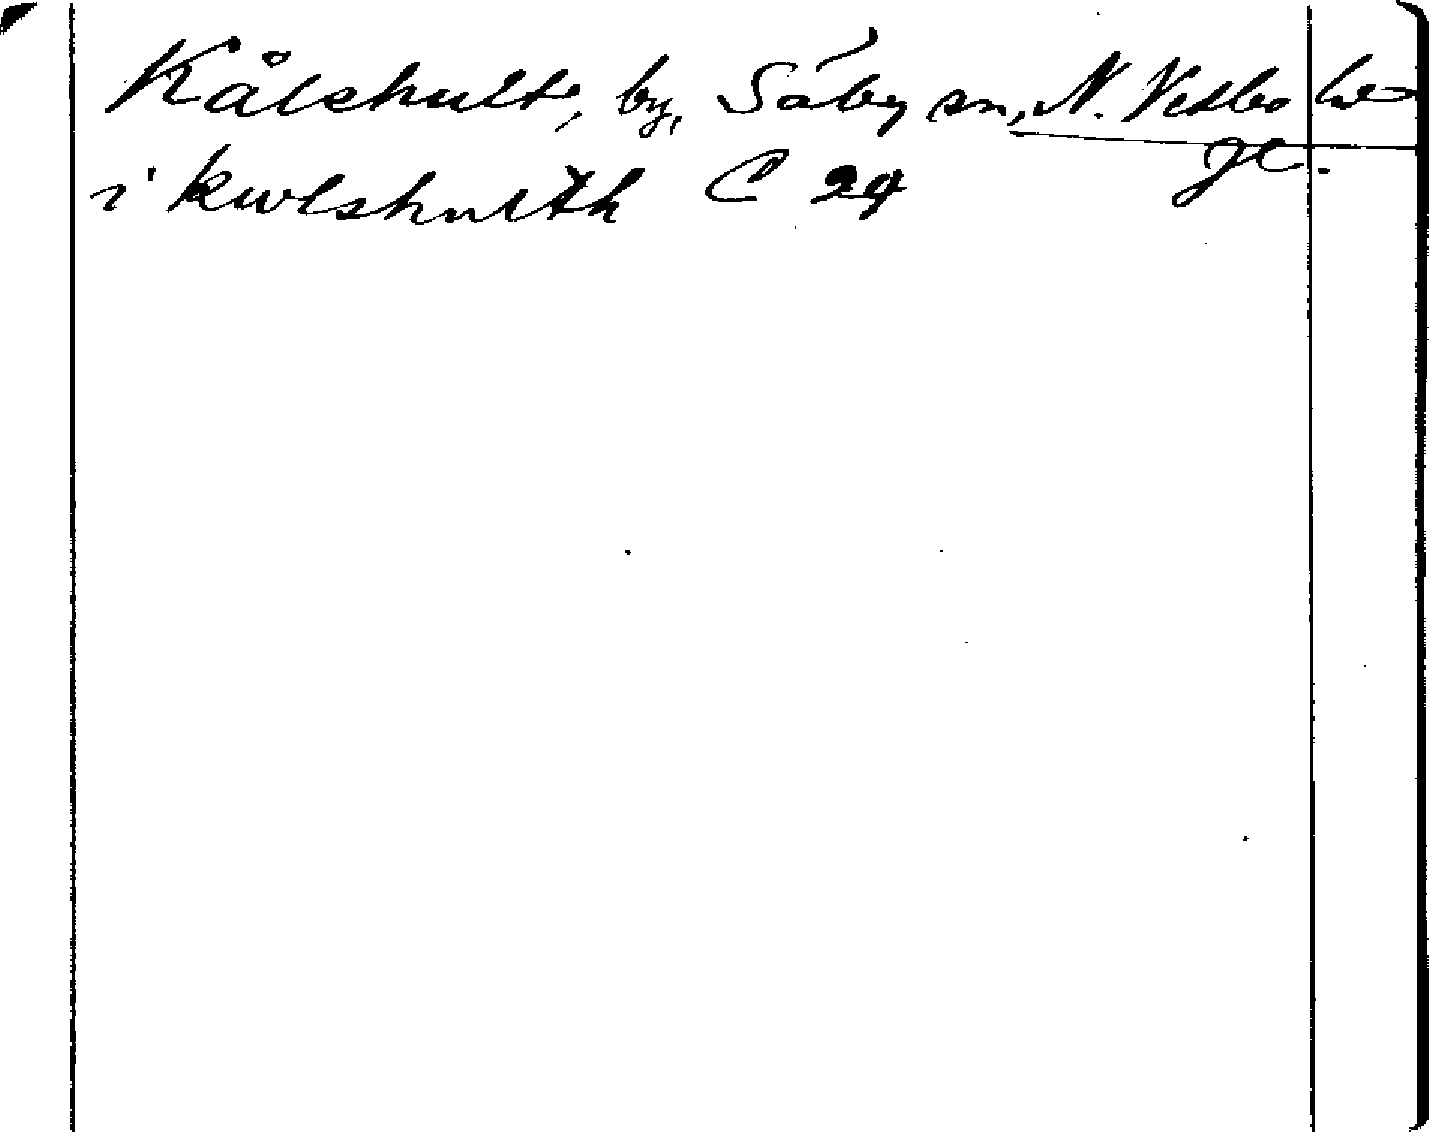 Kålshult, by, Säby sn, N. Vedbo hd
Jl.
i kwlshulth C 29